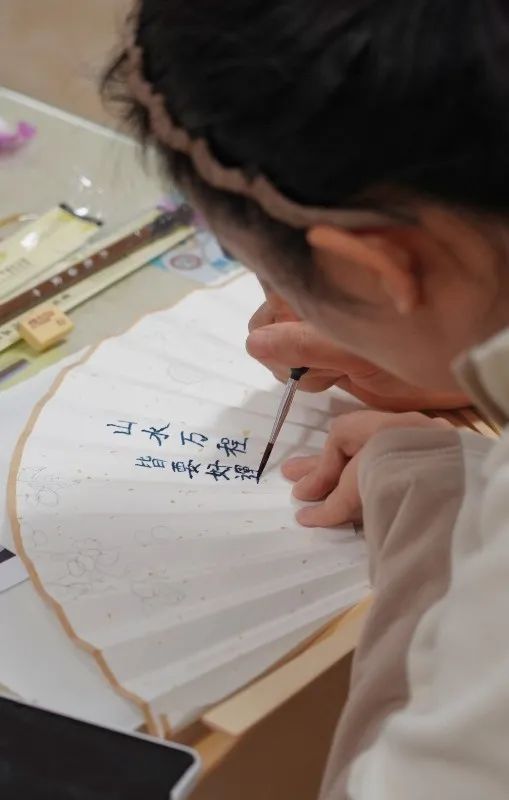 山水万程
皆要好運